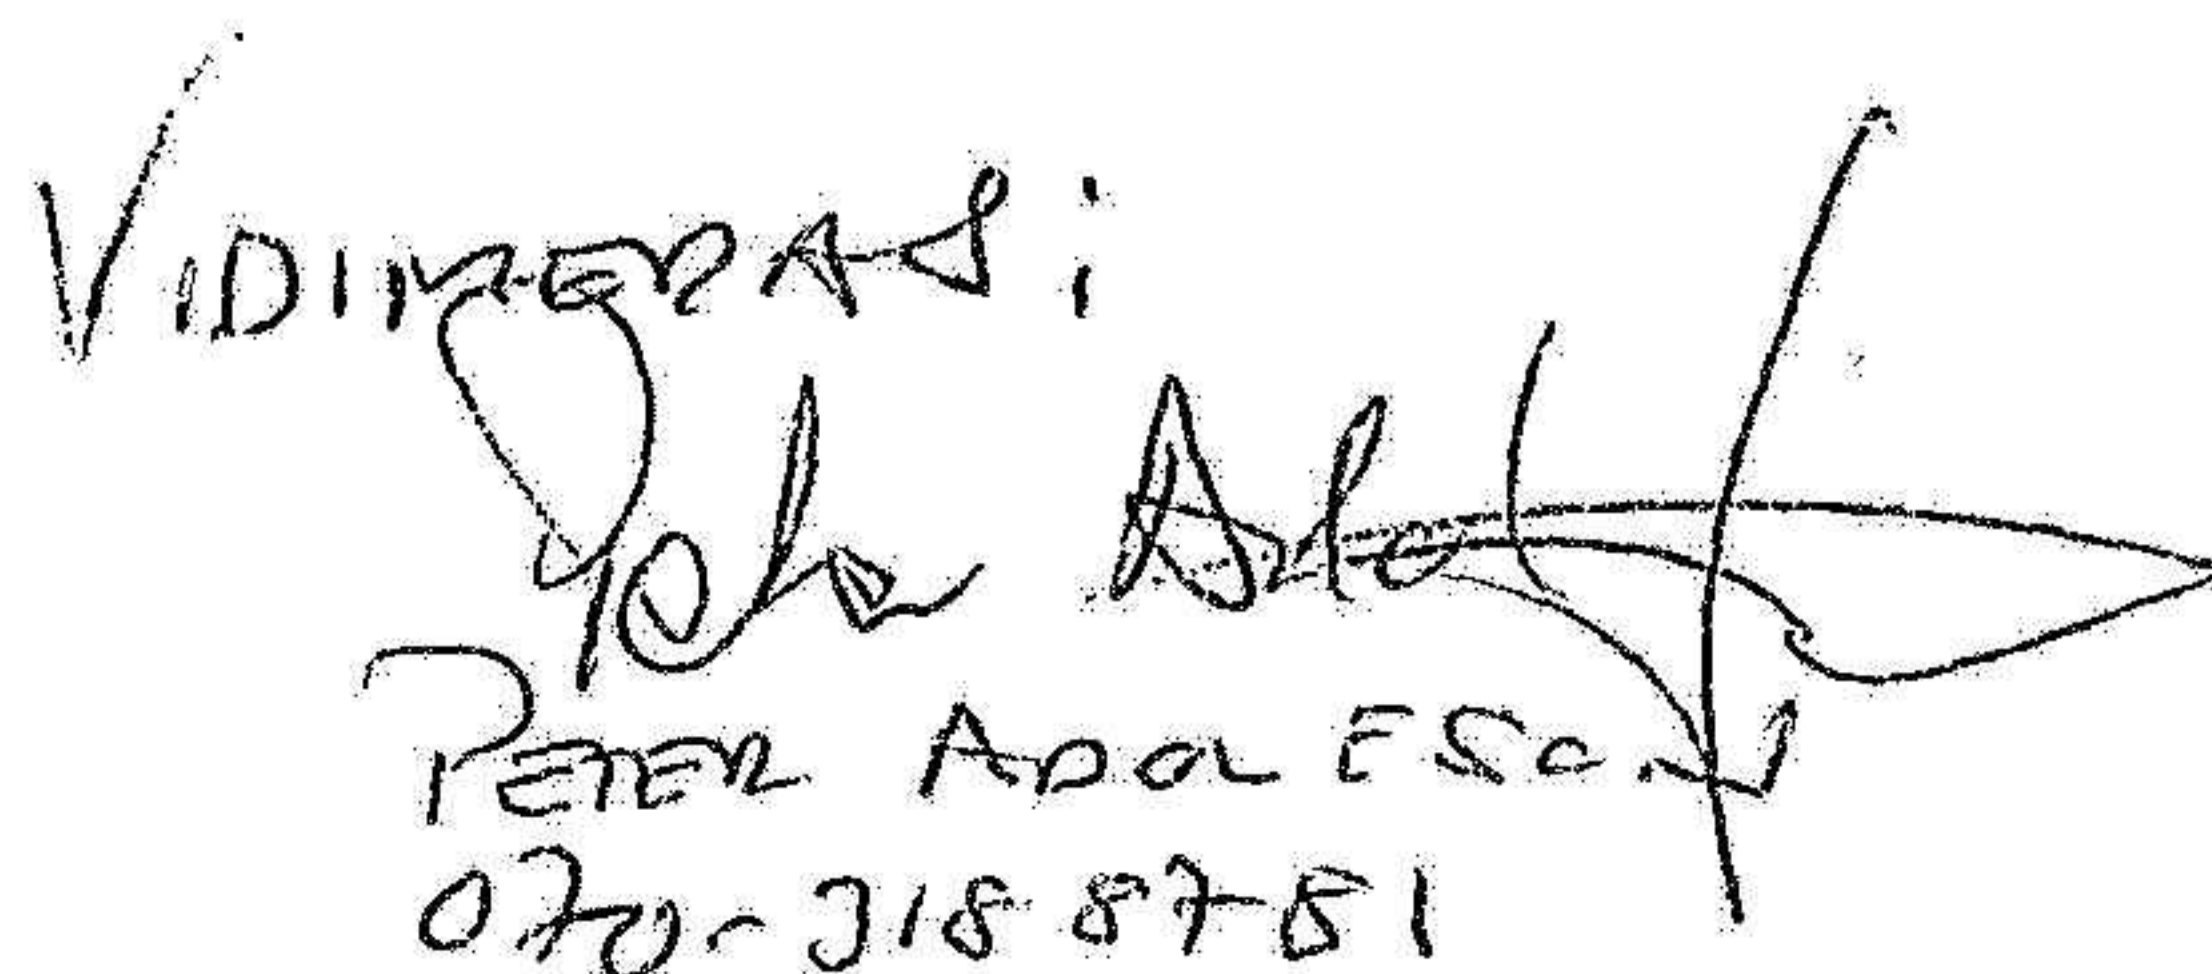 VIDIMERAS:
PETER ADOLFSSON
070-318 87 81